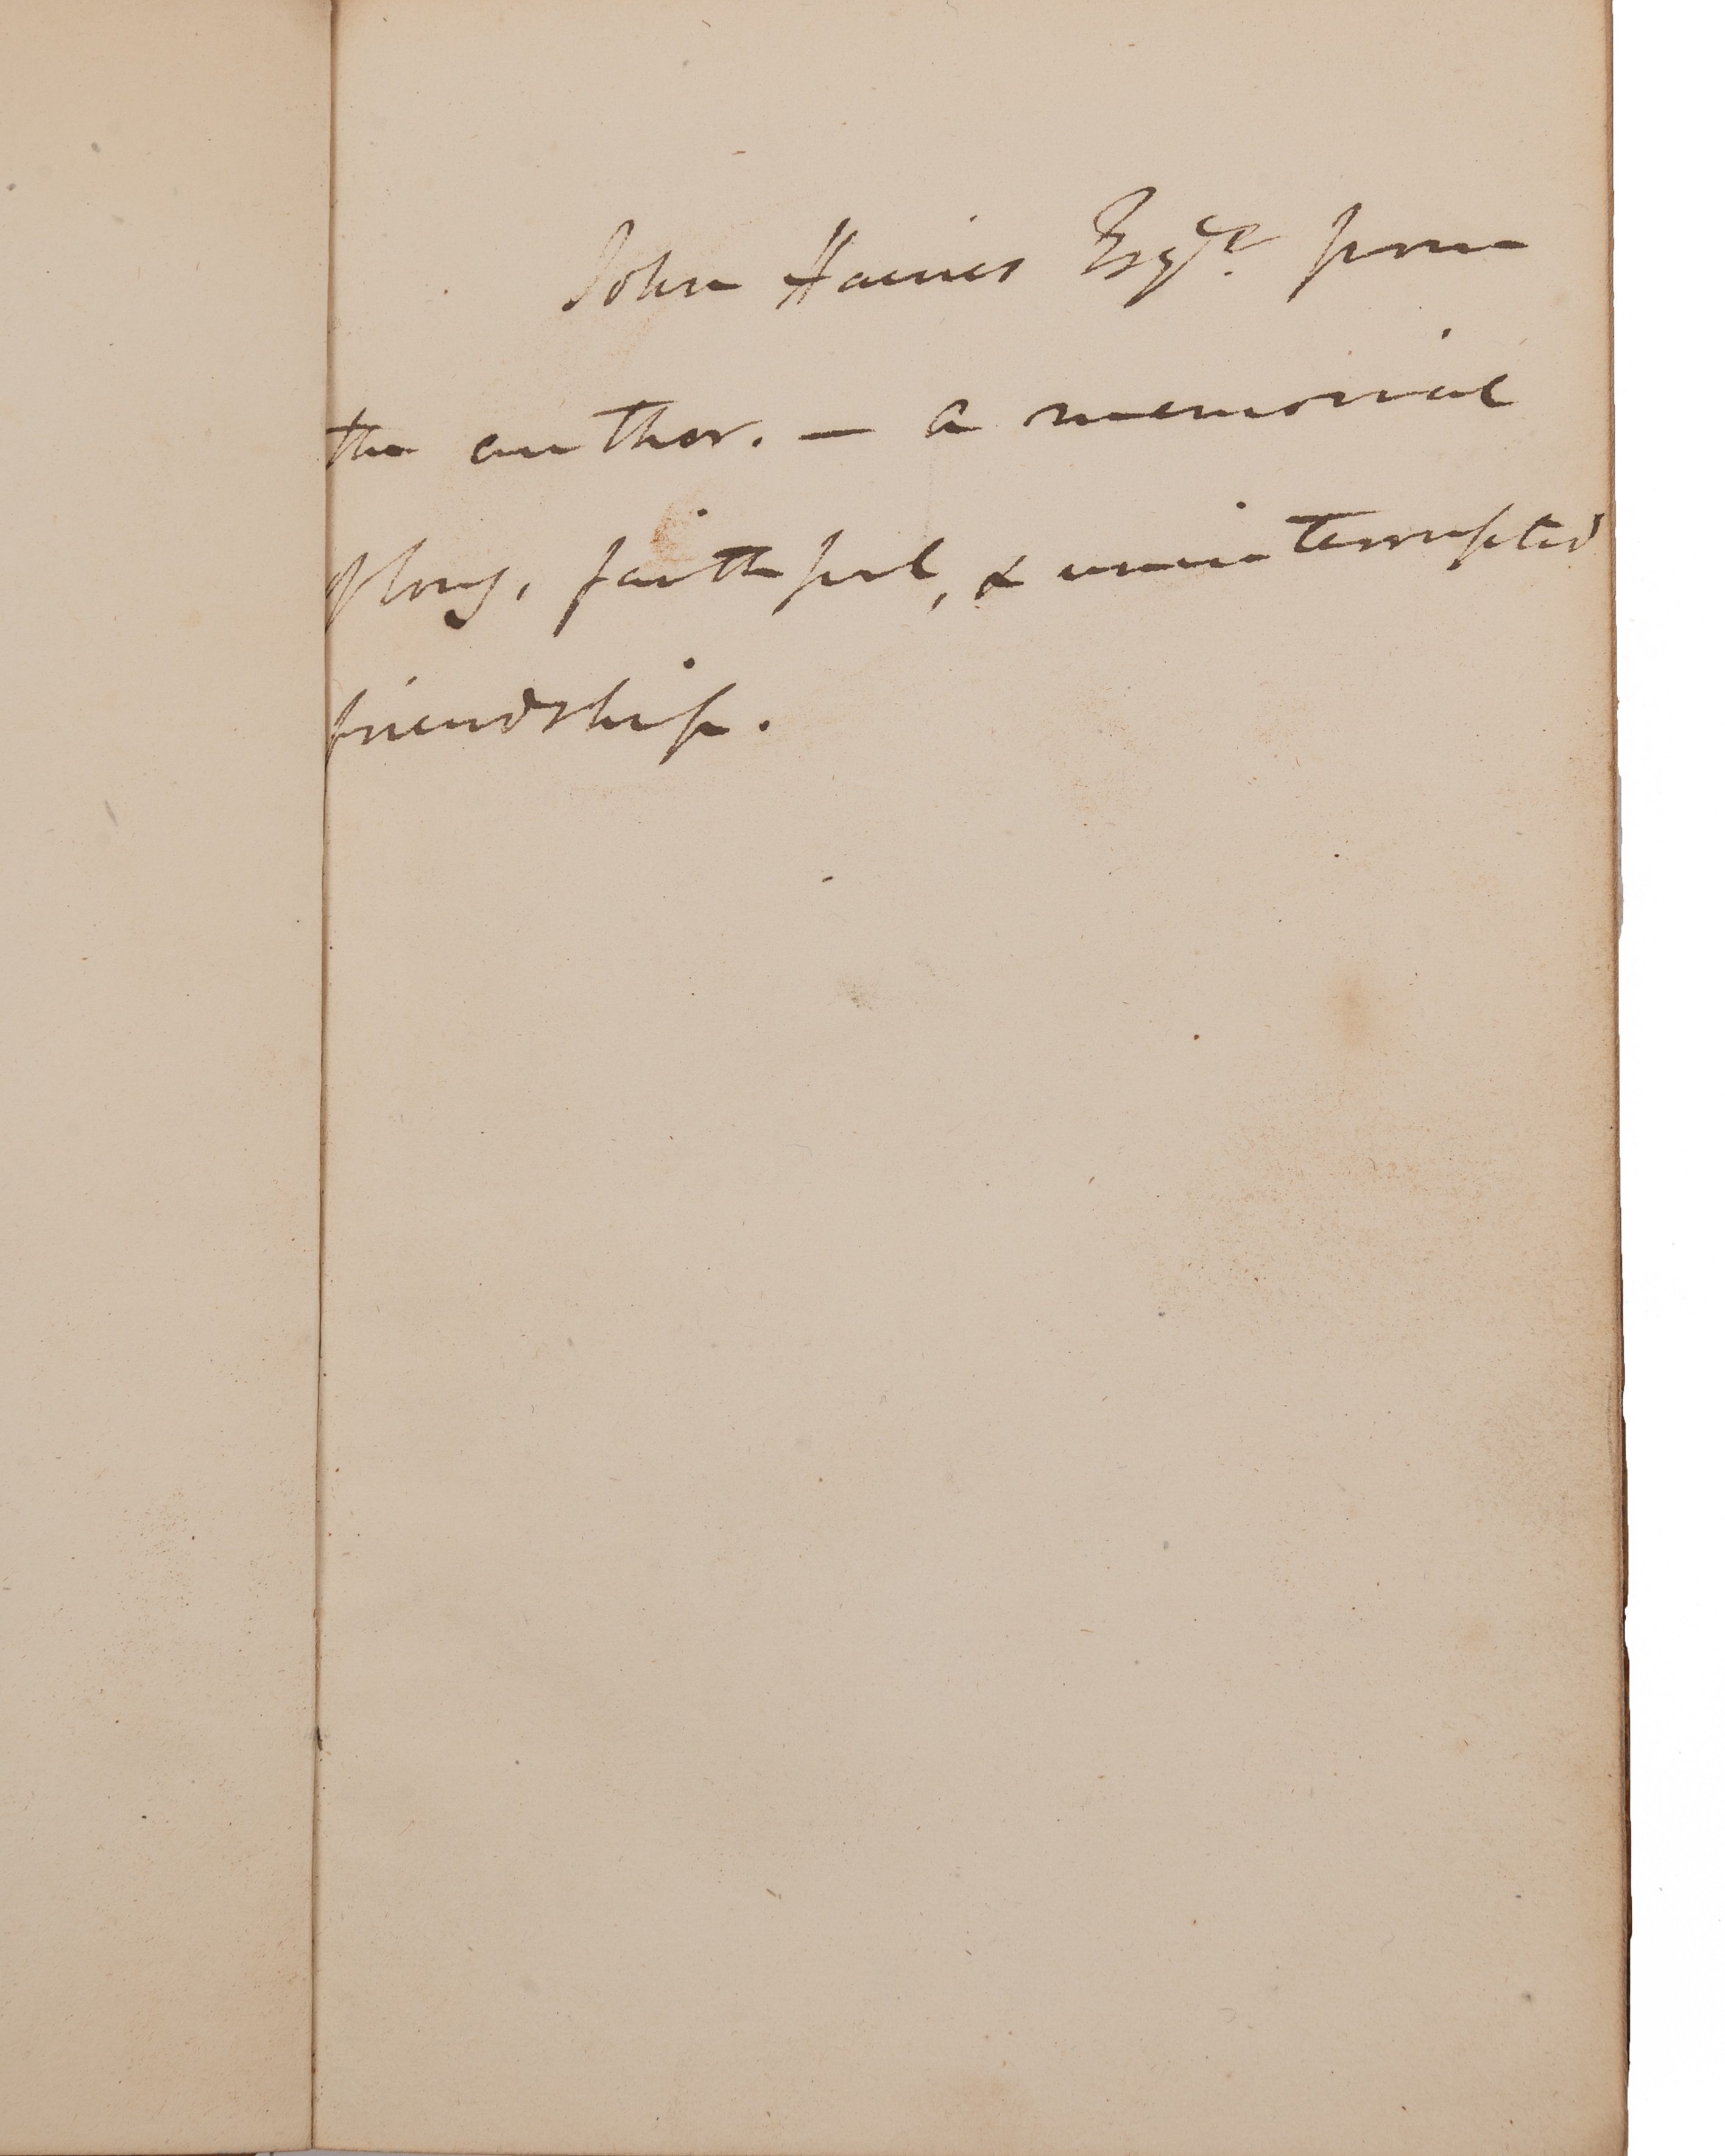 John Haines Esqre. from
the author. — a memorial
of long, faithful, & uninterrupted
friendship.